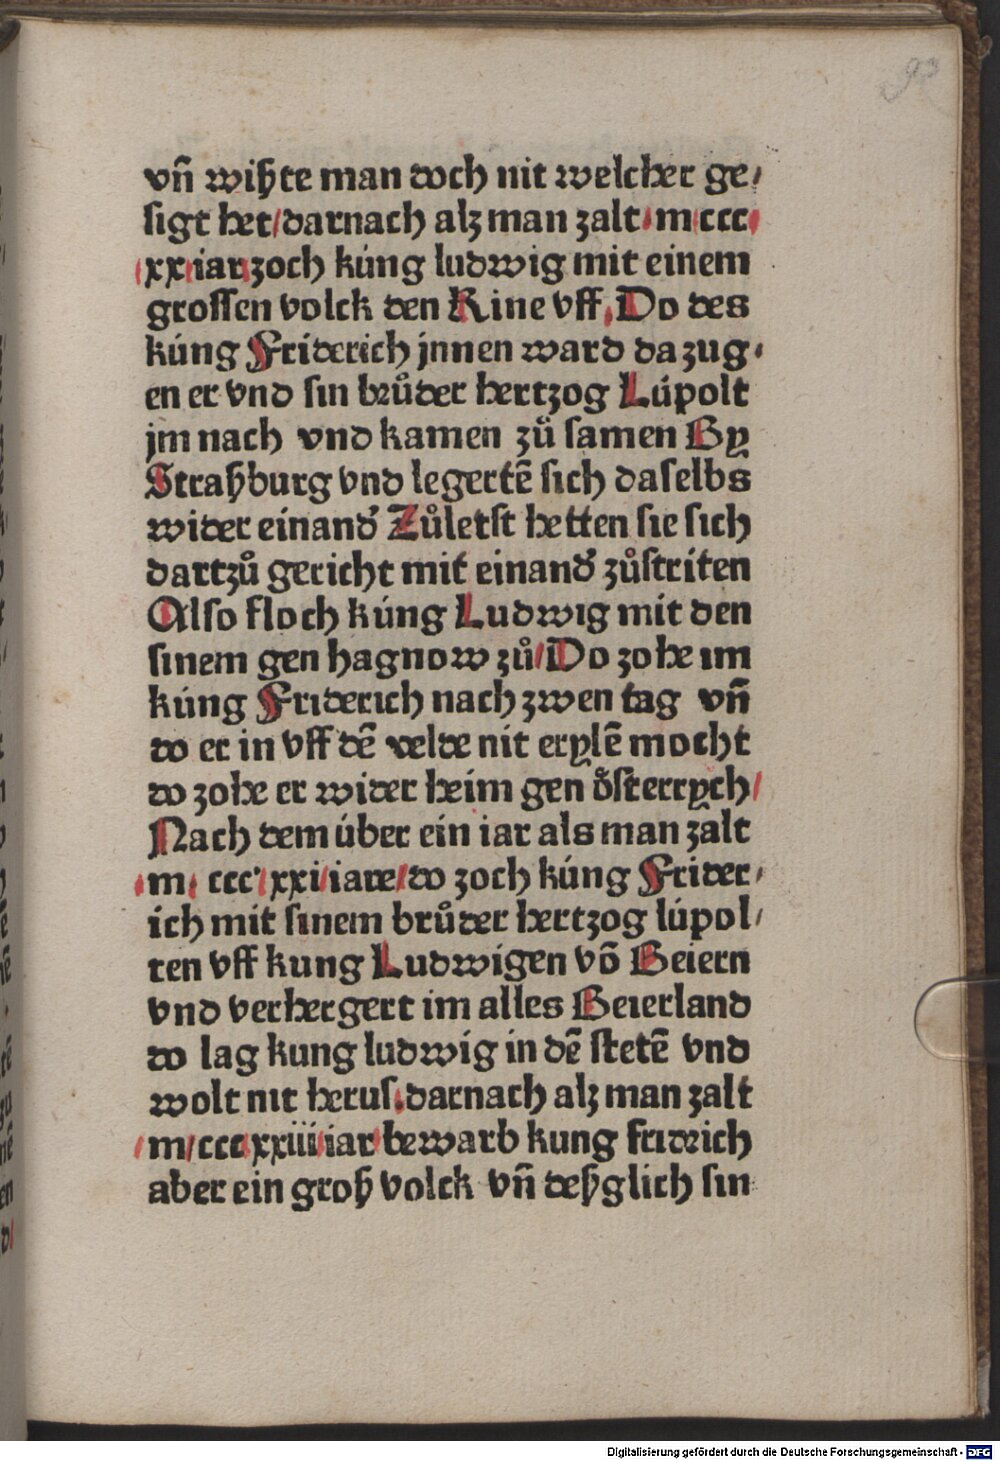 90
vñ wißte man doch nit welcher ge/
sigt het/darnach alz man zalt·m ccc/
/xx/iar/zoch kúng ludwig mit einem
grossen volck den Rine vff/Do des
kúng Friderich jnnen ward da zug/
en er vnd sin brůder hertzog Lúpolt
jm nach vnd kamen zů samen By
Straßburg vnd legertē sich daselbs
wider einand' Zůletst hetten sie sich
dartzů gericht mit einand' zůstriten
Also floch kúng Ludwig mit den
sinem gen hagnow zů/Do zohe im
kúng Friderich nach zwen tag vñ
do er in vff dē velde nit erylē mocht
do zohe er wider heim gen österrych/
Nach dem úber ein iar als man zalt
/m/ ccc'/xxi/iare/do zoch kúng Frider/
ich mit sinem brůder hertzog lúpol/
ten vff kung Ludwigen vō Beiern
vnd verhergert im alles Beierland
do lag kung ludwig in dē stetē vnd
wolt nit herus/darnach alz man zalt
/m/ccc xxiii/iar/bewarb kung fridrich
aber ein groß volck vñ deßglich sin
Digitalisierung gefördert durch die Deutsche Forschungsgemeinschaft - DFG